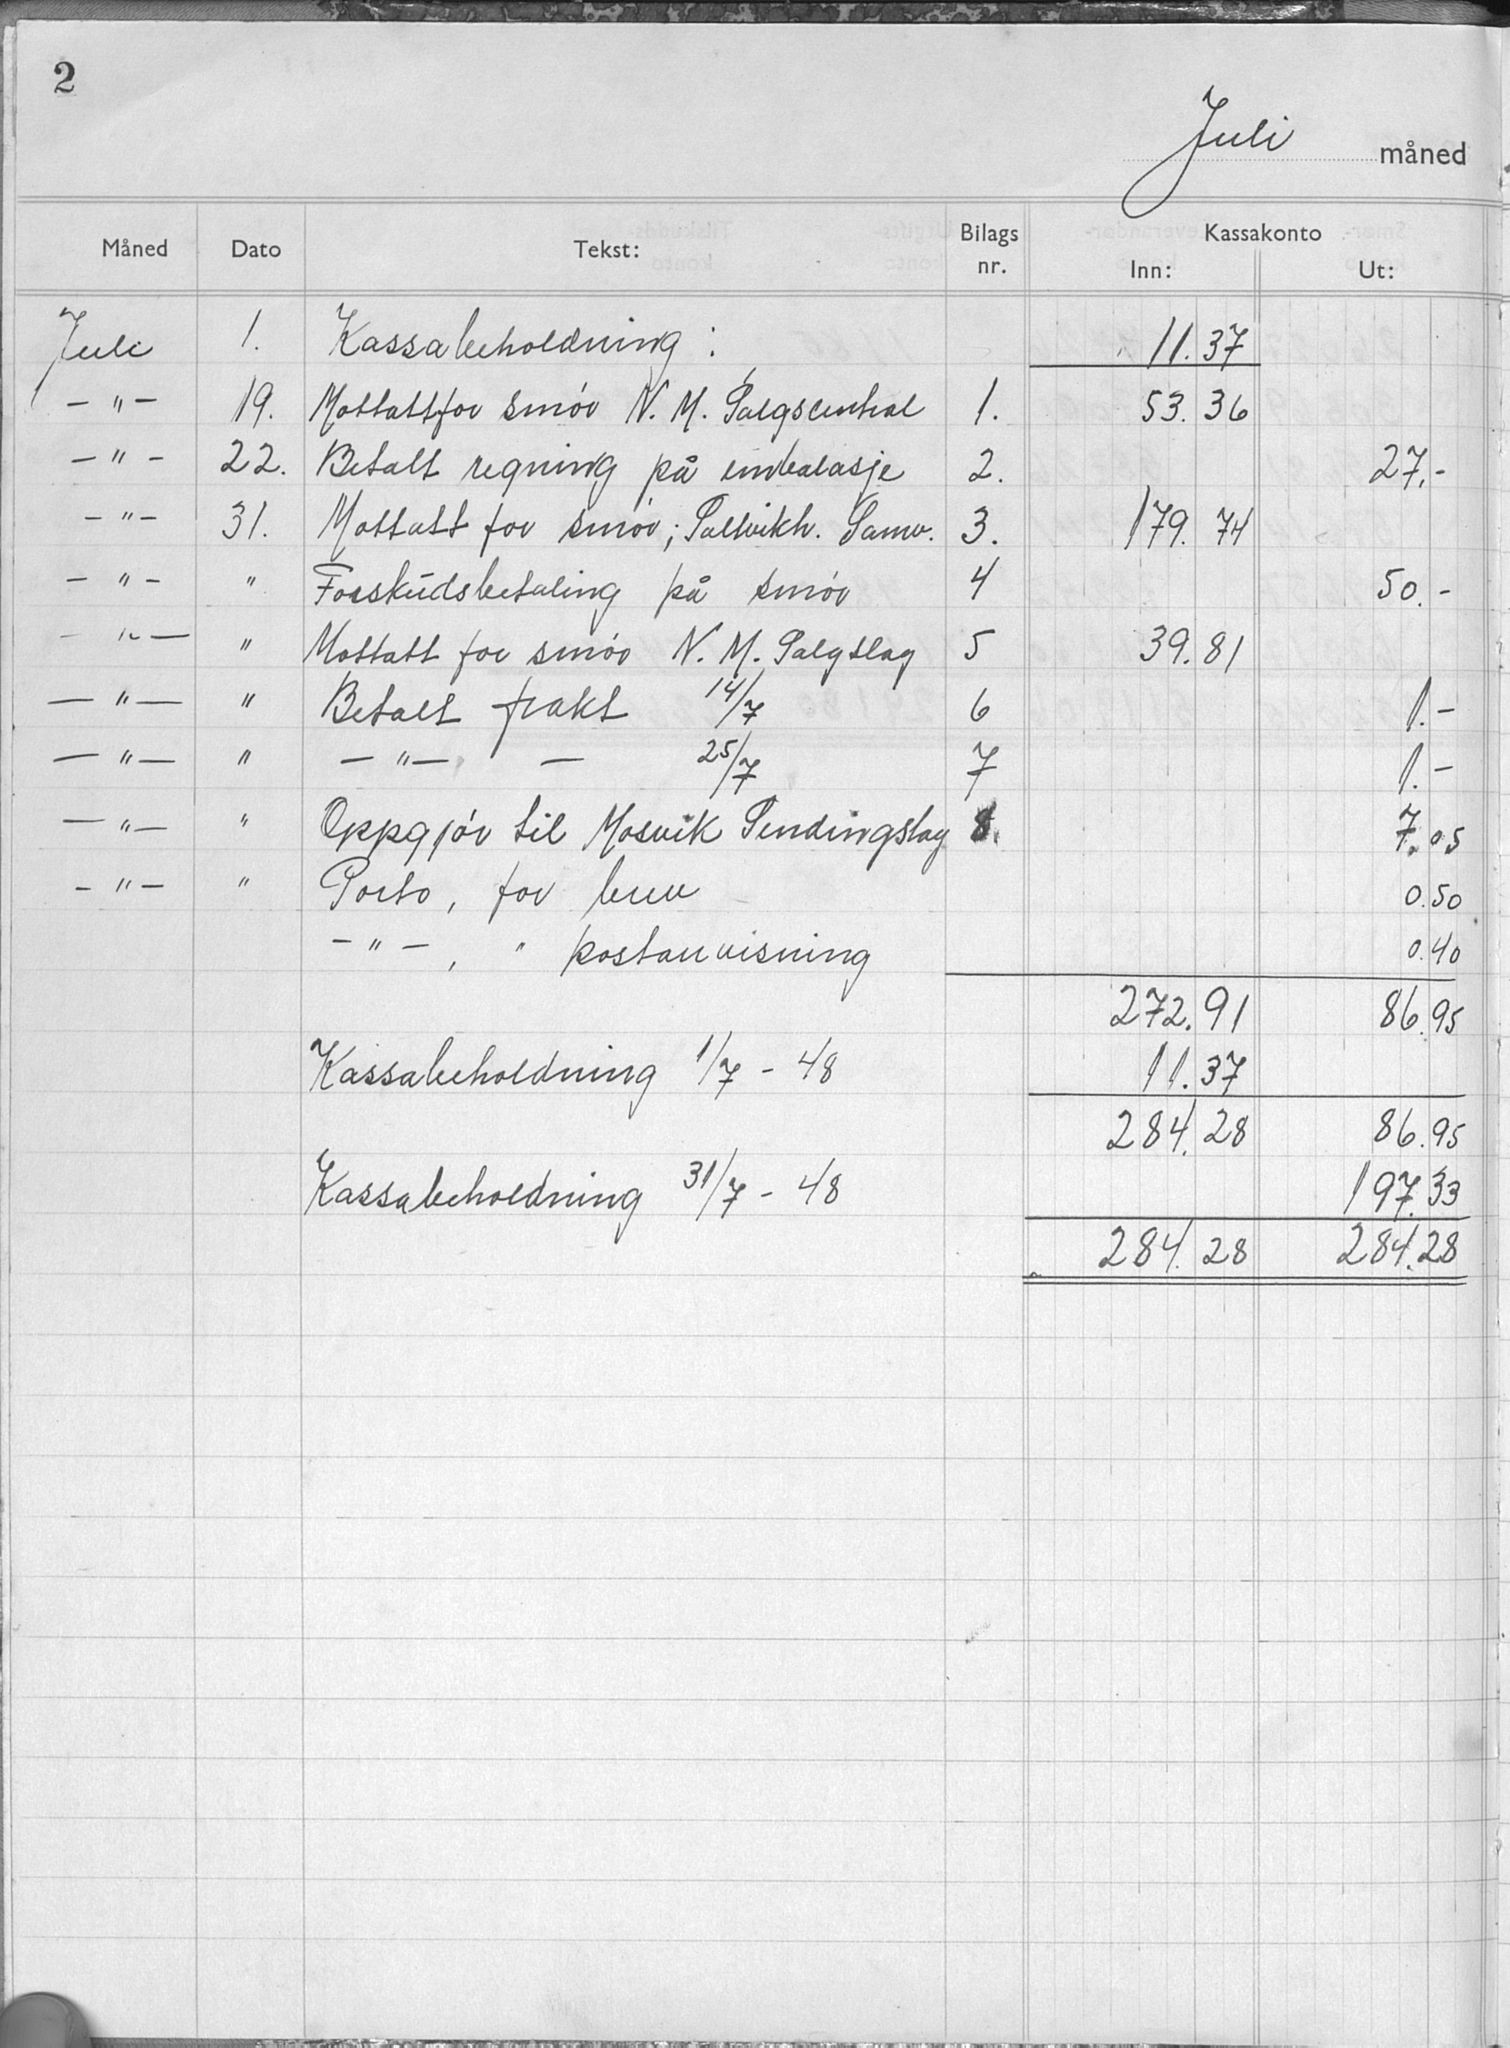 2
Juli måned
Måned Dato Tekst: Bilags nr. Kassakonto Inn: Ut:
Juli 1. Kassabeholdning: 11.37
- " - 19. Mottatt for smør N. M. Salgscentral 1. 53.36
- " - 22. Betalt regning på embalasje 2. 27.-
- " - 31. Mottatt for smør; Saltvikh. Samv. 3. 179.74
- " - " Forskudsbetaling på smør 4 50.-
- " - " Mottatt for smør N. M. Salgslag 5 39.81
- " - " Betalt frakt 14/7 6 1.-
- " - " - " - - 25/7 7 1.-
- " - " Oppgjør til Mosvik Sendingslag 8. 7.05
- " - " Porto, for brev 0.50
- " - , " postanvisning 0.40
272.91 86.95
Kassabeholdning 1/7 - 48 11.37
284.28 86.95
Kassabeholdning 31/7 - 48 197.33
284.28 284.28